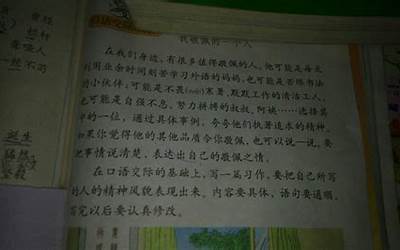 口语交际
我敬佩的一个人
在我们身边，有很多值得敬佩的人。他可能是每天
利用业余时间刻苦学习外语的妈妈，也可能是苦练书法
的小伙伴；可能是不畏(wèi)寒暑、默默工作的清洁工人，
也可能是自强不息、努力拼搏的叔叔、阿姨……选择其
中的一位，通过具体事例，夸夸他们执著追求的精神。
如果你觉得他的其他品质令你敬佩，也可以说一说，要
把事情说清楚，表达出自己的敬佩之情。
在口语交际的基础上，写一篇习作，要把自己所写
的人的精神风貌表现出来。内容要具体，语句要通顺，
写完以后要认真修改。
诞生